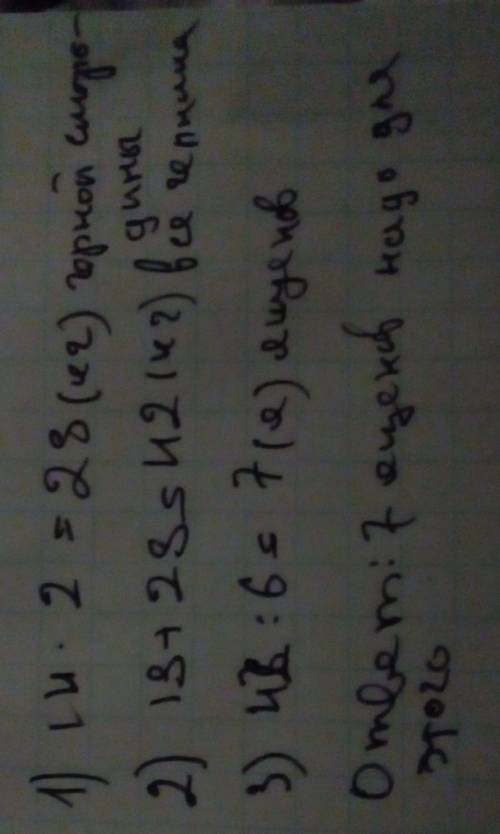 1) 14 · 2 = 28 (кг) чорной сморо-
дины
2) 18 + 28 = 42 (кг) все черника
3) 42 : 6 = 7 (я) ящеков
Ответ: 7 ящеков надо для
этого